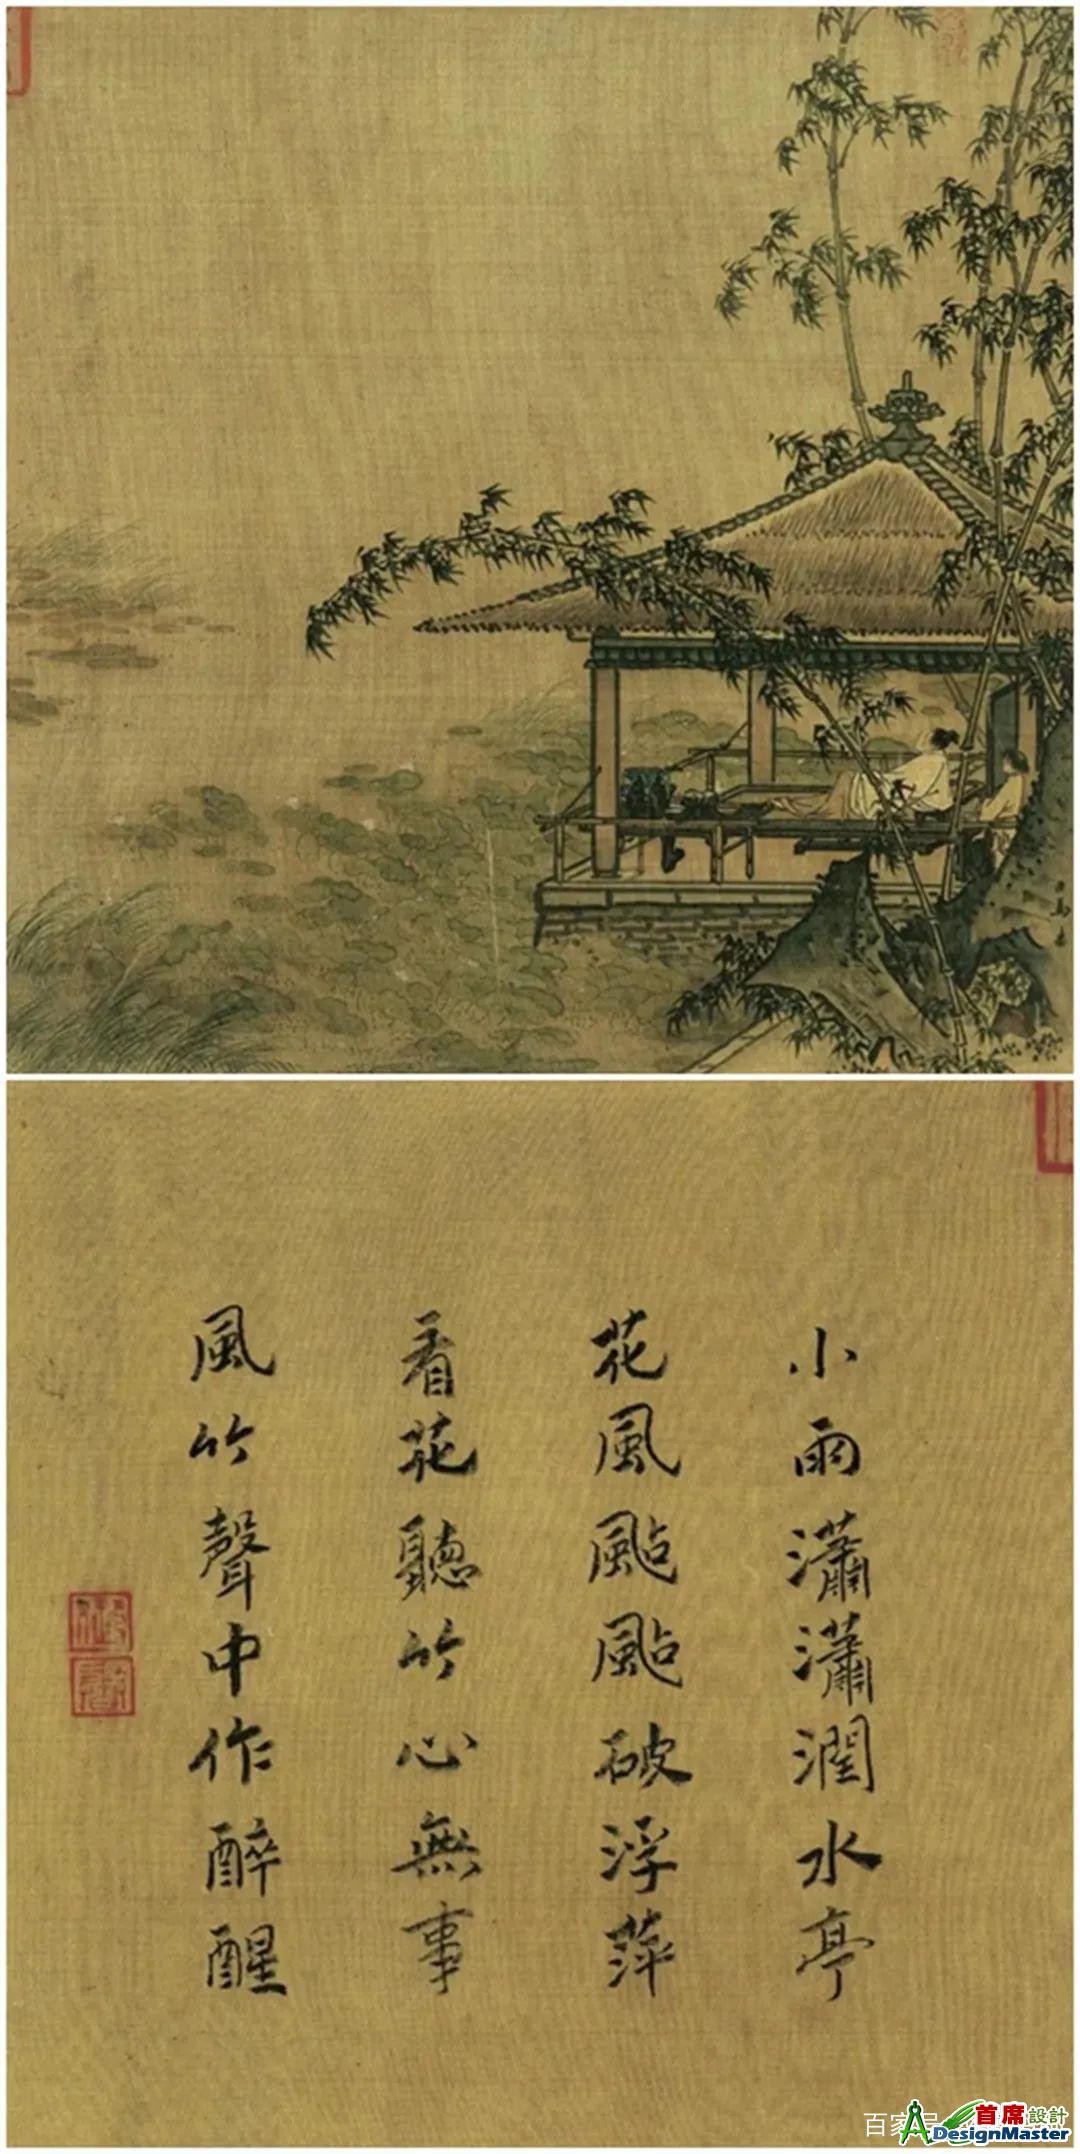 小雨瀟瀟潤水亭
花風颭颭破浮萍
看花聽竹心無事
風竹聲中作醉醒
百家号
首席設計
ADesignMaster